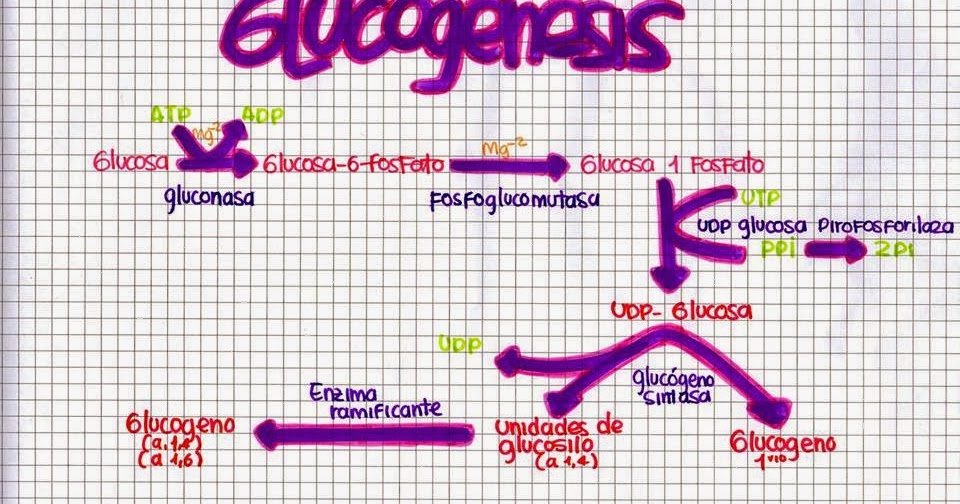 Glucogenesis
ATP
Mg-2
ADP
Glucosa
Glucosa-6-fosfato
Mg-2
Glucosa 1 Fosfato
gluconasa
Fosfoglucomutasa
UTP
UDP glucosa Pirofosforilaza
PPi
2Pi
UDP- Glucosa
UDP
glucógeno
simasa
Enzima
ramificante
Glucogeno
(a 1,4)
(a 1,6)
unidades de
glucosilo
(a 1,4)
Glucogeno
1rio